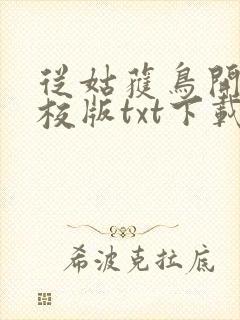 從姑獲鳥開
校版txt下載
希波克拉底